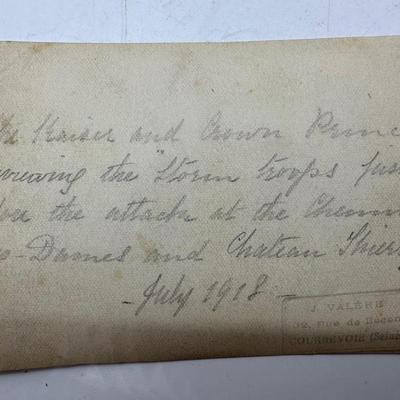 The Kaiser and Crown Princ
viewing the "Storm troops jus
fore the attack at the Chemin
s-Dames and Chateau Thierr
- July 1918 -
J. VALÉRE
32, Rue de Bécon
COURBEVOIE (Seine